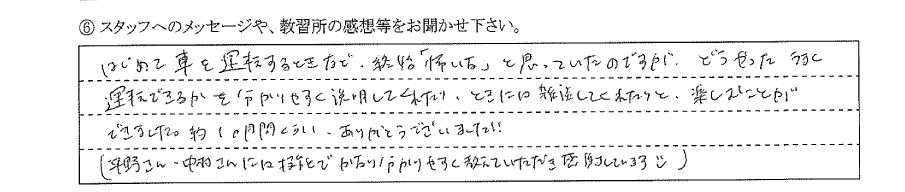 ⑥ スタッフへのメッセージや、教習所の感想等をお聞かせ下さい。
はじめて車を運転するときまで、終始「怖いな」と思っていたのですが、どうやったらうまく
運転できるかを分かりやすく説明してくれたり、ときには雑談してくれたりと、楽しむことが
できました。約1ヶ月間くらい、ありがとうございました!!
(平野さん・中村さんには技能でかなり分かりやすく教えていただき感謝しています☺)